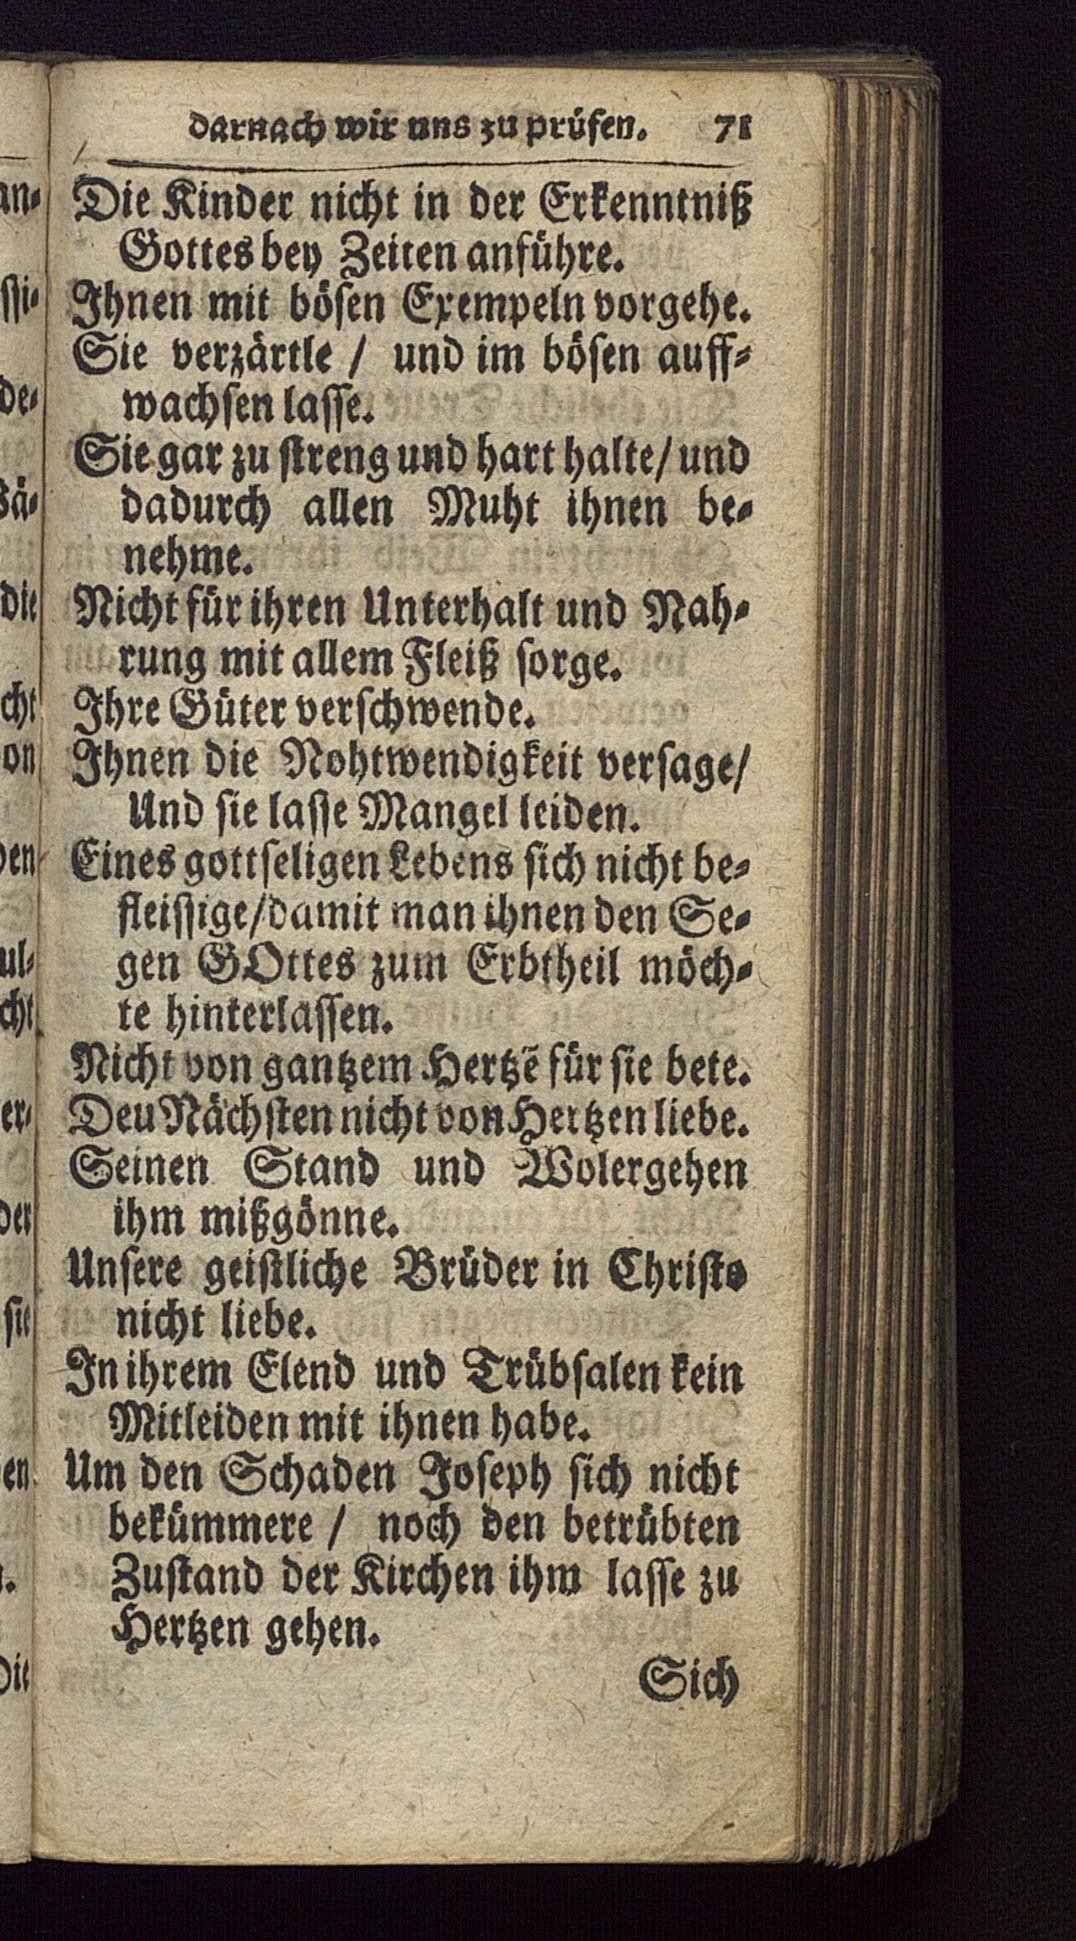 darnach wir uns zu prüfen. 71
Die Kinder nicht in der Erkenntniß
Gottes bey Zeiten anführe.
Ihnen mit bösen Exempeln vorgehe.
Sie verzärtle / und im bösen auff-
wachsen lasse.
Sie gar zu streng und hart halte/ und
dadurch allen Muht ihnen be-
nehme.
Nicht für ihren Unterhalt und Nah-
rung mit allem Fleiß sorge.
Ihre Güter verschwende.
Ihnen die Nohtwendigkeit versage/
Und sie lasse Mangel leiden.
Eines gottseligen Lebens sich nicht be-
fleissige/damit man ihnen den Se-
gen GOttes zum Erbtheil möch-
te hinterlassen.
Nicht von gantzem Hertzẽ für sie bete.
Deu Nächsten nicht von Hertzen liebe.
Seinen Stand und Wolergehen
ihm mißgönne.
Unsere geistliche Brüder in Christo
nicht liebe.
In ihrem Elend und Trübsalen kein
Mitleiden mit ihnen habe.
Um den Schaden Joseph sich nicht
bekümmere / noch den betrübten
Zustand der Kirchen ihm lasse zu
Hertzen gehen.
Sich